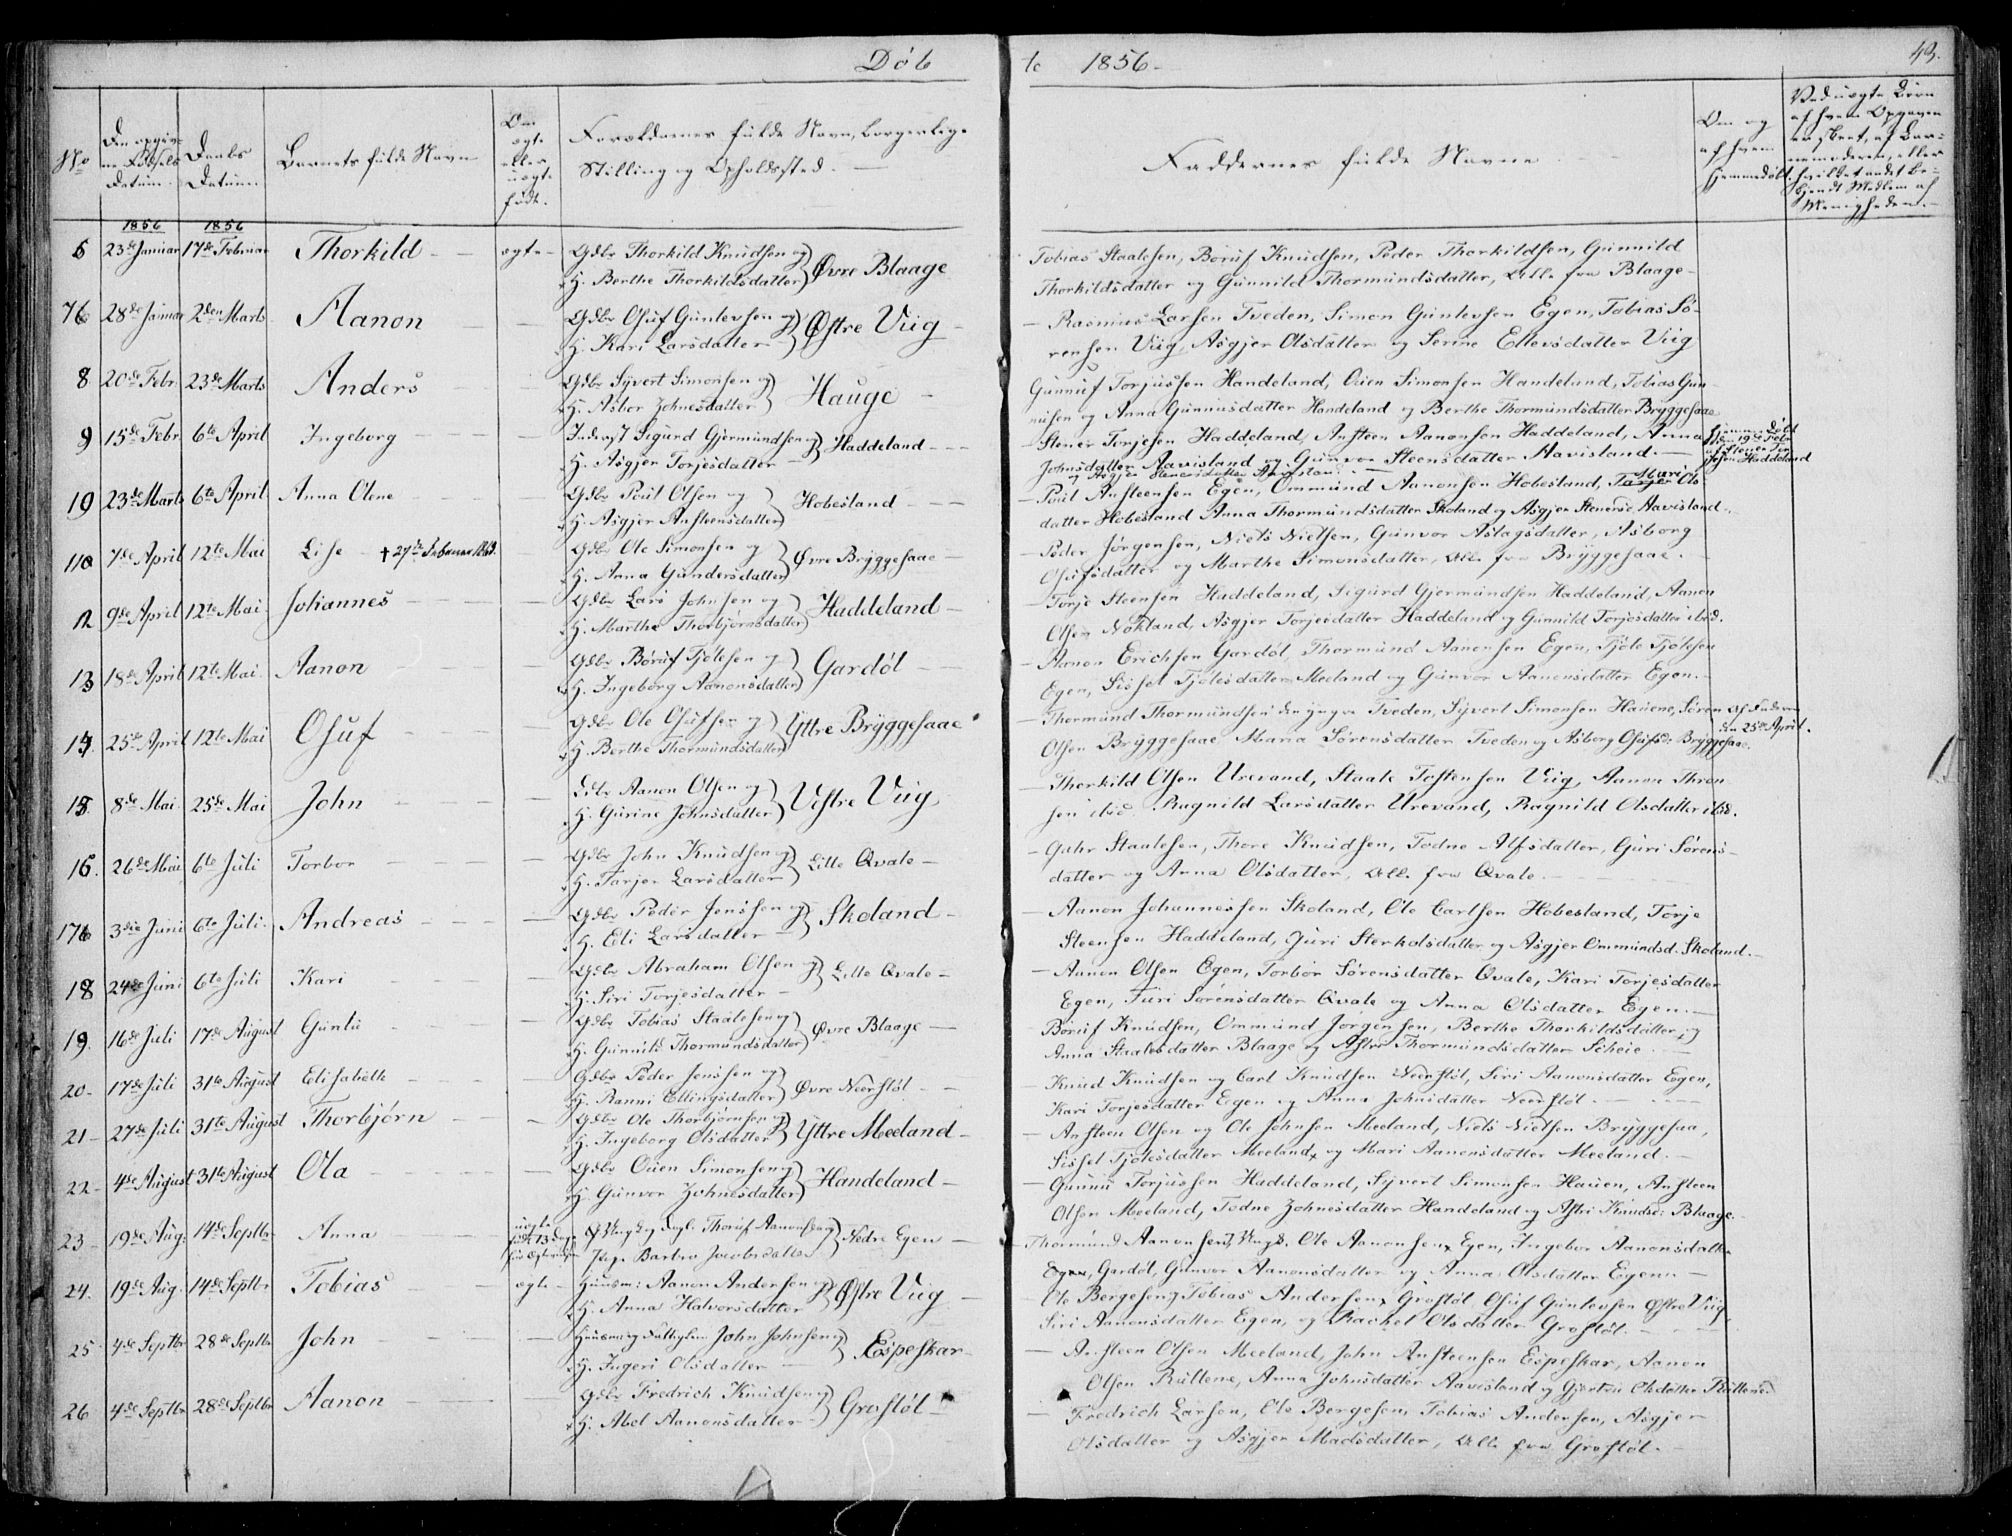 Døb
te 1856.
43.
No
Den opgivne Fødsels Datum.
Daabs Datum.
Barnets fulde Navn
Om ægte eller uægte født.
Forældrenes fulde Navn, borgerlige Stilling og Opholdssted.
Faddernes fulde Navne
Om og af hvem hjemmedøbt.
Ved uægte Børn af hvem Opgaven er skeet, af Barnemoderen, eller hvilket andet bekjendt Medlem af Menigheden.
1856 1856
6 23de Januar 17de Februar Thorkild ægte Gdbr Thorkild Knudsen og
H. Berthe Thorkildsdatter Øvre Blaage
Tobias Staalesen, Børuf Knudsen, Peder Thorkildsen, Gunnild
Thorkildsdatter og Gunnild Thormundsdatter, Alle fra Blaage
7 28de Januar 2den Marts Aanon Gdbr Osuf Guntevsen og
H. Kari Larsdatter Østre Viig
Rasmus Larsen Tveden, Simon Guntevsen Egen, Tobias Sø-
rensen Viig, Asgjer Olsdatter og Serine Ellevsdatter Viig
8 20de Febr. 23de Marts Anders Gdbr Syvert Simonsen og
H. Asbor Johnesdatter Hauge
Gunnuf Torjussen Handeland, Ouen Simonsen Handeland, Tobias Gun-
nusen og Anna Gunnusdatter Handeland og Berthe Thormundsdatter Bryggesaae
9 15de Febr. 6te April Ingeborg Inderst Sigurd Gjermundsen og
H. Asgjer Torjesdatter Haddeland
Stener Torjesen Haddeland, Ansteen Aanonsen Haddeland, Anna
Johnsdatter Aavisland og Gunvor Steensdatter Aavisland.
og Asgjer Stenersdatter Aavisland
Hjemmedøbt
den 19de Febr
af Stener Tor-
jesen Haddeland
10 23de Marts 6te April Anna Olene Gdbr Poul Olsen og
H. Asgjer Ansteensdatter Hobesland
Poul Ansteensen Egen, Ommund Aanonsen Hobesland, Mari Ols
datter Hobesland Anna Thormundsdatter Skoland og Asgjer Stenersd. Aavisland
11 7de April 12te Mai Lise † 27de Februar 1863. Gdbr Ole Simonsen og
H. Anna Gundersdatter Øvre Bryggesaae
Peder Jørgensen, Niels Nielsen, Gunvor Aslagsdatter, Asborg
Osufsdatter og Marthe Simonsdatter, Alle fra Bryggesaae.
12 9de April 12te Mai Johannes Gdbr Lars Johnsen og
H. Marthe Thorbjørnsdatter Haddeland
Torje Steensen Haddeland, Sigurd Gjermundsen Haddeland, Aanon
Olsen Nokland, Asgjer Torjesdatter Haddeland og Gunnild Torjesdatter ibid.
13 18de April 12te Mai Aanon Gdbr Børuf Tjølesen og
H. Ingeborg Aanonsdatter Gardøl
Aanon Erichsen Gardøl, Thormund Aanonsen Egen, Tjøle Tjølesen
Egen, Sissel Tjølesdatter Meeland og Gunvor Aanonsdatter Egen.
14 25de April 12te Mai Osuf Gdbr Ole Osufsen og
H. Berthe Thormundsdatter Yttre Bryggesaae
Thormund Thormundsen den yngre Tveden, Syvert Simonsen Hauene, Søren
Olsen Bryggesaae, Maria Sørensdatter Tveden og Asborg Osufsd: Bryggesaae.
af Faderen
den 25de April.
15 8de Mai 25de Mai John Gdbr Aanon Olsen og
H. Gurine Johnsdatter Vestre Viig
Thorkild Olsen Urevand, Staale Tostensen Viig, Aanon Thron
sen ibid Ragnild Larsdatter Urevand, Ragnild Olsdatter ibid.
16 26de Mai 6te Juli Torbor Gdbr John Knudsen og
H. Tarjer Larsdatter Lille Qvale
Gahr Staalesen, Thore Knudsen, Todne Alfsdatter, Guri Sørens-
datter og Anna Olsdatter, Alle fra Qvale.
17 3die Juni 6te Juli Andreas Gdbr Peder Jensen og
H. Eli Larsdatter Skoland
Aanon Johannessen Skoland, Ole Carlsen Hobesland, Torje
Steensen Haddeland, Juri Sterkolsdatter og Asgjer Ommundsd. Skoland.
18 24de Juni 6te Juli Kari Gdbr Abraham Olsen og
H. Siri Torjesdatter Lille Qvale
Aanon Olsen Egen, Torbor Sørensdatter Qvale, Kari Torjesdatter
Egen, Turi Sørensdatter Qvale og Anna Olsdatter Egen.
19. 16de Juli 17de August Guntu Gdbr Tobias Staalesen og
H. Gunnild Thormundsdatter Øvre Blaage
Børuf Knudsen, Ommund Jørgensen, Berthe Thorkildsdatter og
Anna Staalesdatter Blaage og Astri Thormundsdatter Scheie.
20. 17de Juli 31te August Elisabeth Gdbr Peder Jensen og
H. Ranni Ellingsdatter Øvre Neerstøl
Knud Knudsen og Carl Knudsen Neerstøl, Siri Aanonsdatter Egen,
Kari Torjesdatter Egen og Anna Johnsdatter Neerstøl.
21 27de Juli 31te August Thorbjørn Gdbr Ole Thorbjørnsen og
H. Ingeborg Olsdatter Yttre Meeland
Ansteen Olsen og Ole Johnsen Meeland, Niels Nielsen Bryggesaa,
Sissel Tjølesdatter Meeland og Mari Aanonsdatter Meeland.
22 4de August 31te August Ola Gdbr Ouen Simonsen og
H. Gunvor Johnesdatter Handeland
Gunnu Torjussen Haddeland, Syvert Simonsen Hauen, Ansteen
Olsen Meeland, Todne Johnesdatter Handeland og Astri Knudsd: Blaage.
23 19de Aug. 14de Septbr Anna uægte Thoruf Aanonsen og
Pige Barbro Jacobsdatter Nedre Egen
Thormund Aanonsen, Ungk. Ole Aanonsen Egen, Ingebor Aanonsdatter
Gardøl, Gunvor Aanonsdatter og Anna Olsdatter Egen.
24. 19de Aug. 14de Septbr Tobias ægte Huusm: Aanon Andersen og
H. Anna Halvorsdatter Østre Viig
Ole Bergesen, Tobias Andersen Grostøl, Osuf Guntevsen Østre Viig,
Siri Aanonsdatter Egen, og Rachel Olsdatter Grostøl.
25 4de Septbr 28de Septbr John Huusmand John Johnsen og
H. Ingeri Olsdatter Espeskar
Ansteen Olsen Meeland, John Ansteensen Espeskar, Aanon
Olsen Rullene, Anna Johnsdatter Aavisland og Gjertru Olsdatter Rullene
26 4de Septbr 28de Septbr Aanon Gdbr Fredrich Knudsen og
H. Abel Aanonsdatter Grostøl
Fredrich Larsen, Ole Bergesen, Tobias Andersen, Asgjer
Olsdatter og Asgjer Madsdatter, Alle fra Grostøl.